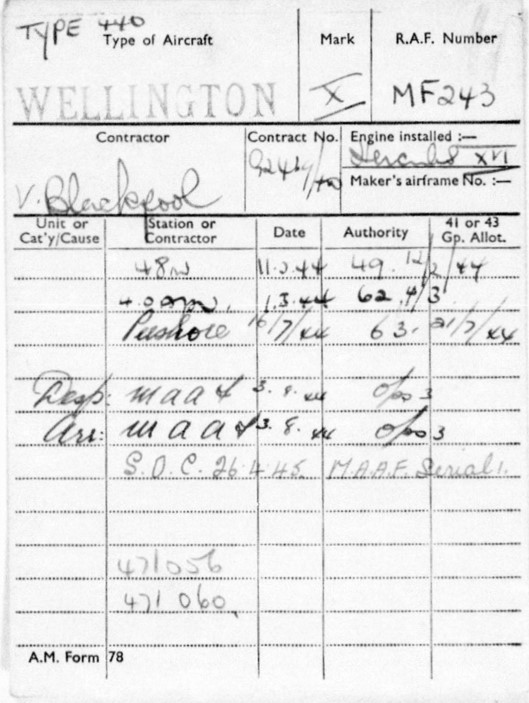 TYPE 440
Type of Aircraft Mark R.A.F. Number
WELLINGTON X MF243
Contractor Contract No. Engine installed :—
Hercules XVI
V. Blackpool Maker's airframe No. :—
Unit or Cat'y/Cause Station or Contractor Date Authority 41 or 43 Gp. Allot.
48m 11.2.44 49. 12/2/44
1.3.44 62.4/3
Pershore 16/7/44 63. 21/7/44
Desp: maaf 3.8.44 Ops 3
Arr: maaf 3.8.44 Ops 3
S.O.C. 26.4.45. M.A.A.F. Serial 1.
471056
471060
A.M. Form 78